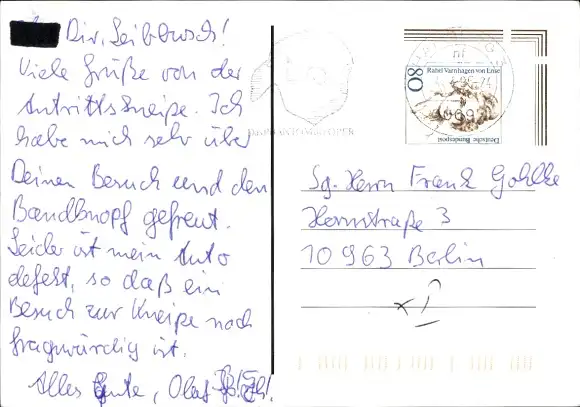 Dir, Leibbursch!
Viele Grüße von der
Antrittskneipe. Ich
habe mich sehr über
Deinen Besuch und den
Bandknopf gefreut.
Leider ist mein Auto
defekt, so daß ein
Besuch zur Kneipe noch
fragwürdig ist.
Alles Gute, Olaf
80
Rahel Varnhagen von Ense
Deutsche Bundespost
OPER
Sg. Herrn Frank Gohlke
Hornstraße 3
10963 Berlin